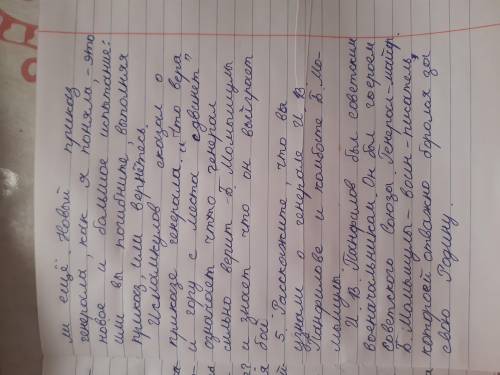 ли ещё. Новый приказ
генерала, как я поняла - это
новое и большое испытание:
или вы погибните, выполняя
приказ или вернётесь.
Исламкулов сказал о
приказе генерала: "Что вера
и гору с места сдвинет"
означает что генерал
сильно верит Б. Момышулы
и знает что он выйграет
бой
5. Расскажите, что вы
узнали о генерале И. В
Панфилове и комбате Б. Мо-
мышулы.
И. В. Панфилов был советским
военачальником. Он был героем
советского союза. Генерал-майор.
Б. Момышулы - воин-писатель,
которой отважно боролся за
свою Родину.